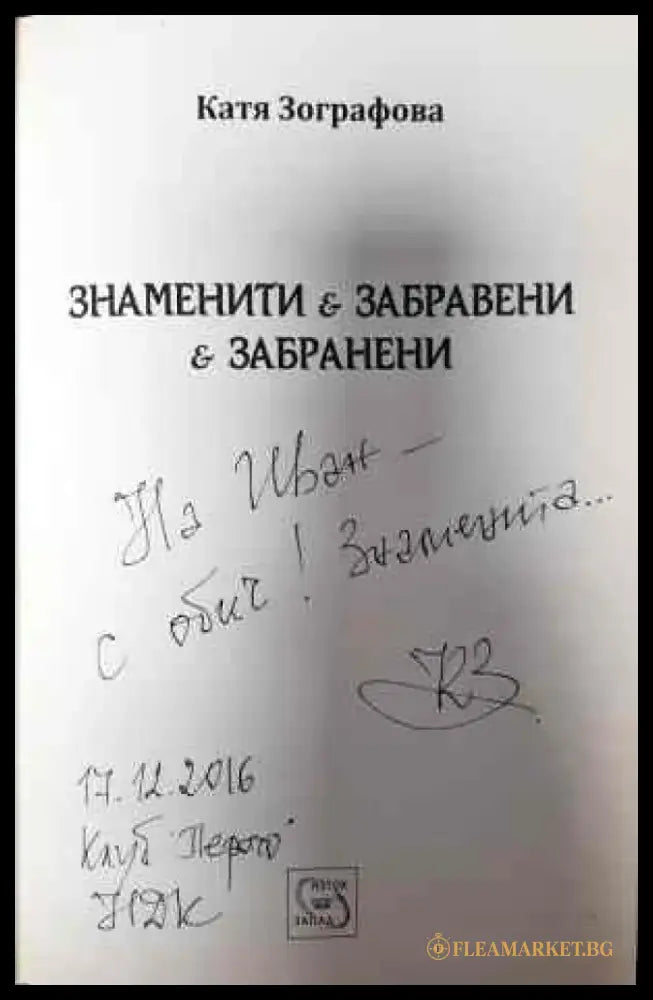 Катя Зографова
ЗНАМЕНИТИ & ЗАБРАВЕНИ
& ЗАБРАНЕНИ
На Иван –
с обич! Знаменита...
КЗ
17.12.2016
Клуб "Перото"
НДК
ИЗТОК
ЗАПАД
FLEAMARKET.BG